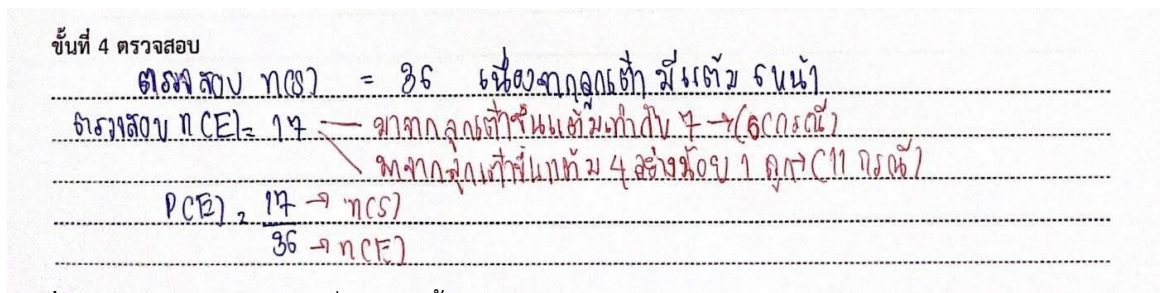 ขั้นที่ 4 ตรวจสอบ
ตรวจสอบ n(S) = 36 เนื่องจากลูกเต๋า มีแต้ม 6 หน้า
ตรวจสอบ n(E) = 17 — มาจากลูกเต๋าขึ้นแต้มเท่ากับ 7 → (6 กรณี)
มาจากลูกเต๋าขึ้นแต้ม 4 อย่างน้อย 1 ลูก → (11 กรณี)
P(E) = 17 → n(S)
36 → n(E)